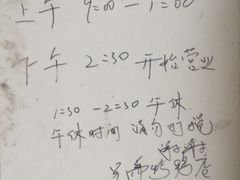 上午 9:00 — 1:00
下午 2:30 开始营业
1:30 - 2:30 午休
午休时间 请勿打扰
谢谢